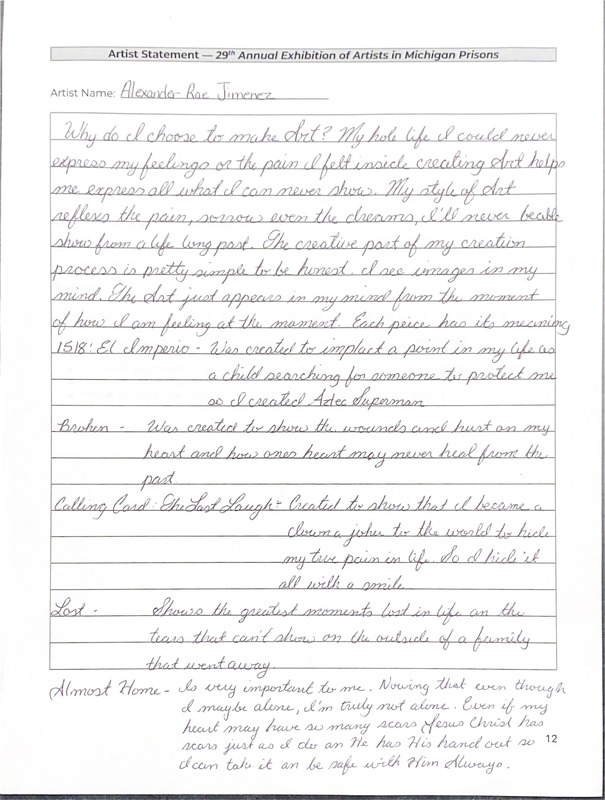 Artist Statement — 29th Annual Exhibition of Artists in Michigan Prisons
Artist Name: Alexander-Rae Jimenez
Why do I choose to make Art? My hole life I could never
express my feelings or the pain I felt inside creating Art helps
me express all what I can never show. My style of Art
reflexs the pain, sorrow even the dreams, I'll never beable
show from a life long past. The creative part of my creation
process is pretty simple to be honest. I see images in my
mind. The Art just appears in my mind from the moment
of how I am feeling at the moment. Each peice has its meaning
1518: El Imperio - Was created to implact a point in my life as
a child searching for someone to protect me
so I created Aztec Superman
Broken - Was created to show the wounds and hurt on my
heart and how ones heart may never heal from the
past.
Calling Card: The Last Laugh - Created to show that I became a
clown a joker to the world to hide
my true pain in life. So I hide it
all with a smile.
Lost - Shows the greatest moments lost in life an the
tears that can't show on the outside of a family
that went away.
Almost Home - Is very important to me. Nowing that even though
I maybe alone, I'm truly not alone. Even if my
heart may have so many scars Jesus Christ has
scars just as I do an He has His hand out so
I can take it an be safe with Him Always.
12